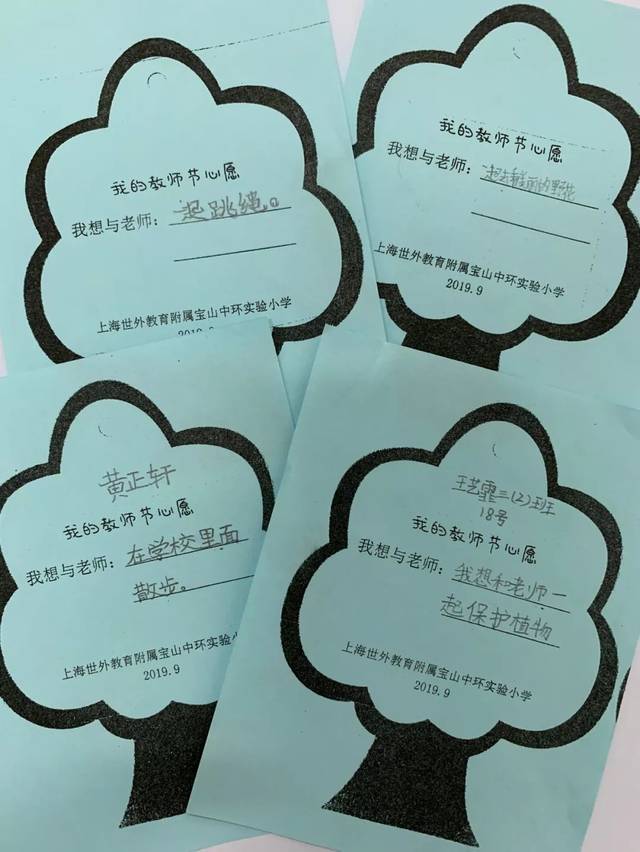 我的教师节心愿
我想与老师：一起跳绳。
上海世外教育附属宝山中环实验小学
2019.9
我的教师节心愿
我想与老师：一起去丽的野花
上海世外教育附属宝山中环实验小学
2019.9
黄正轩
我的教师节心愿
我想与老师：在学校里面
散步。
上海世外教育附属宝山中环实验小
2019.9
王艺霏二(2)班
18号
我的教师节心愿
我想与老师：我想和老师一
起保护植物
上海世外教育附属宝山中环实验小学
2019.9